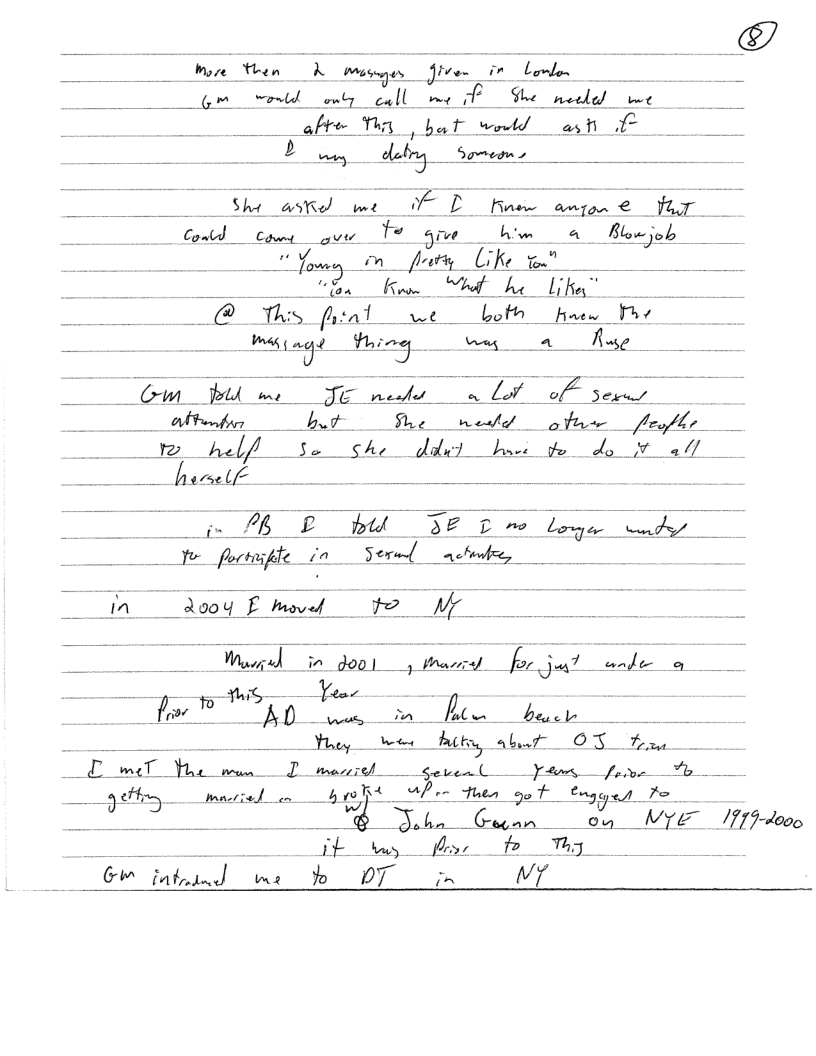 8
More then 2 massages given in London
GM would only call me if she needed me
after this, but would ask if
I was dating someone
She asked me if I knew anyone that
could come over to give him a Blowjob
"Young in pretty like you"
"You know what he likes"
@ this point we both knew the
massage thing was a Ruse
GM told me JE needed a lot of sexual
attention but she needed other people
to help so she didn't have to do it all
herself
in PB I told JE I no longer wanted
to participate in sexual activities
in 2004 I moved to NY
Married in 2001, married for just under a
Year
Prior to this AD was in Palm beach
they were talking about OJ
I met the man I married several years prior to
getting married broke up then got engaged to
w/ John on NYE 1999-2000
it was prior to this
GM introduced me to DT in NY